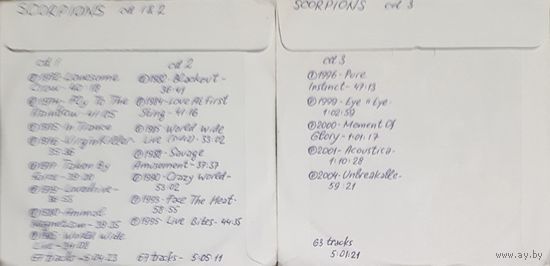 SCORPIONS cd 1&2
cd 1
① 1972 - Lonesome
Crow - 40:18
② 1974 - Fly To The
Rainbow - 41:05
③ 1975 - In Trance
④ 1976 - Virgin Killer -
35:36
⑤ 1977 - Taken By
Force - 39:30
⑥ 1979 - Lovedrive -
⑦ 1980 - Animal
Magnetism - 39:35
World Wide
Live -
67 tracks - 5:04:23
cd 2
① 1982 - Blackout -
36:41
② 1984 - Love At First
Sting - 41:16
③ 1985 - World Wide
Live - 53:02
④ 1988 - Savage
Amusement - 37:37
⑤ 1990 - Crazy World -
53:02
⑥ 1993 - Face The Heat -
58:55
⑦ 1995 - Live Bites - 44:35
67 tracks - 5:05:11
SCORPIONS cd 3
cd 3
① 1996 - Pure
Instinct - 47:13
② 1999 - Eye II Eye -
1:02:59
③ 2000 - Moment Of
Glory - 1:01:17
④ 2001 - Acoustica -
1:10:28
⑤ 2004 - Unbreakable -
59:21
63 tracks
5:01:21
www.ay.by